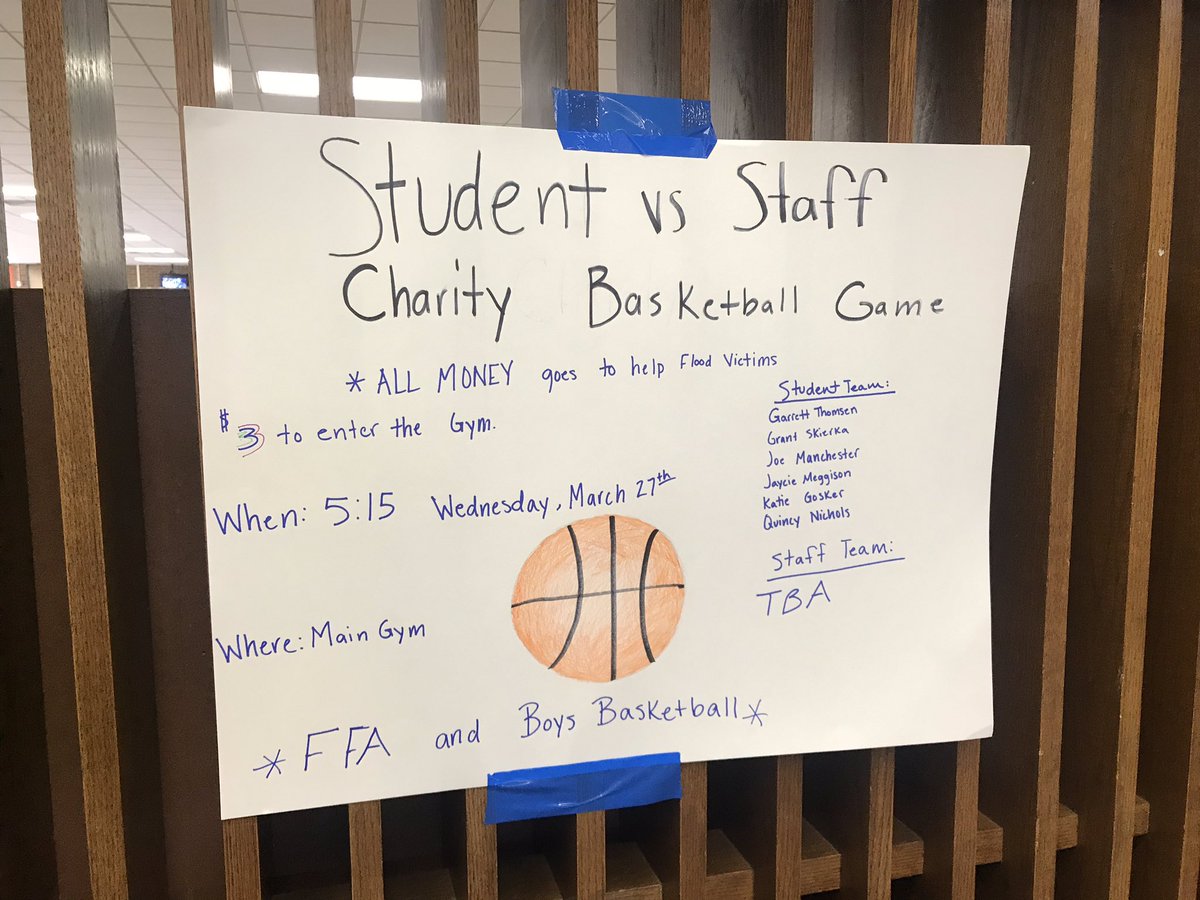 Student vs Staff
Charity Basketball Game
* ALL MONEY goes to help Flood Victims
$3 to enter the Gym.
When: 5:15 Wednesday, March 27th
Where: Main Gym
Student Team:
Garrett Thomsen
Grant Skierka
Joe Manchester
Jaycie Meggison
Katie Gosker
Quincy Nichols
Staff Team:
TBA
* FFA and Boys Basketball *